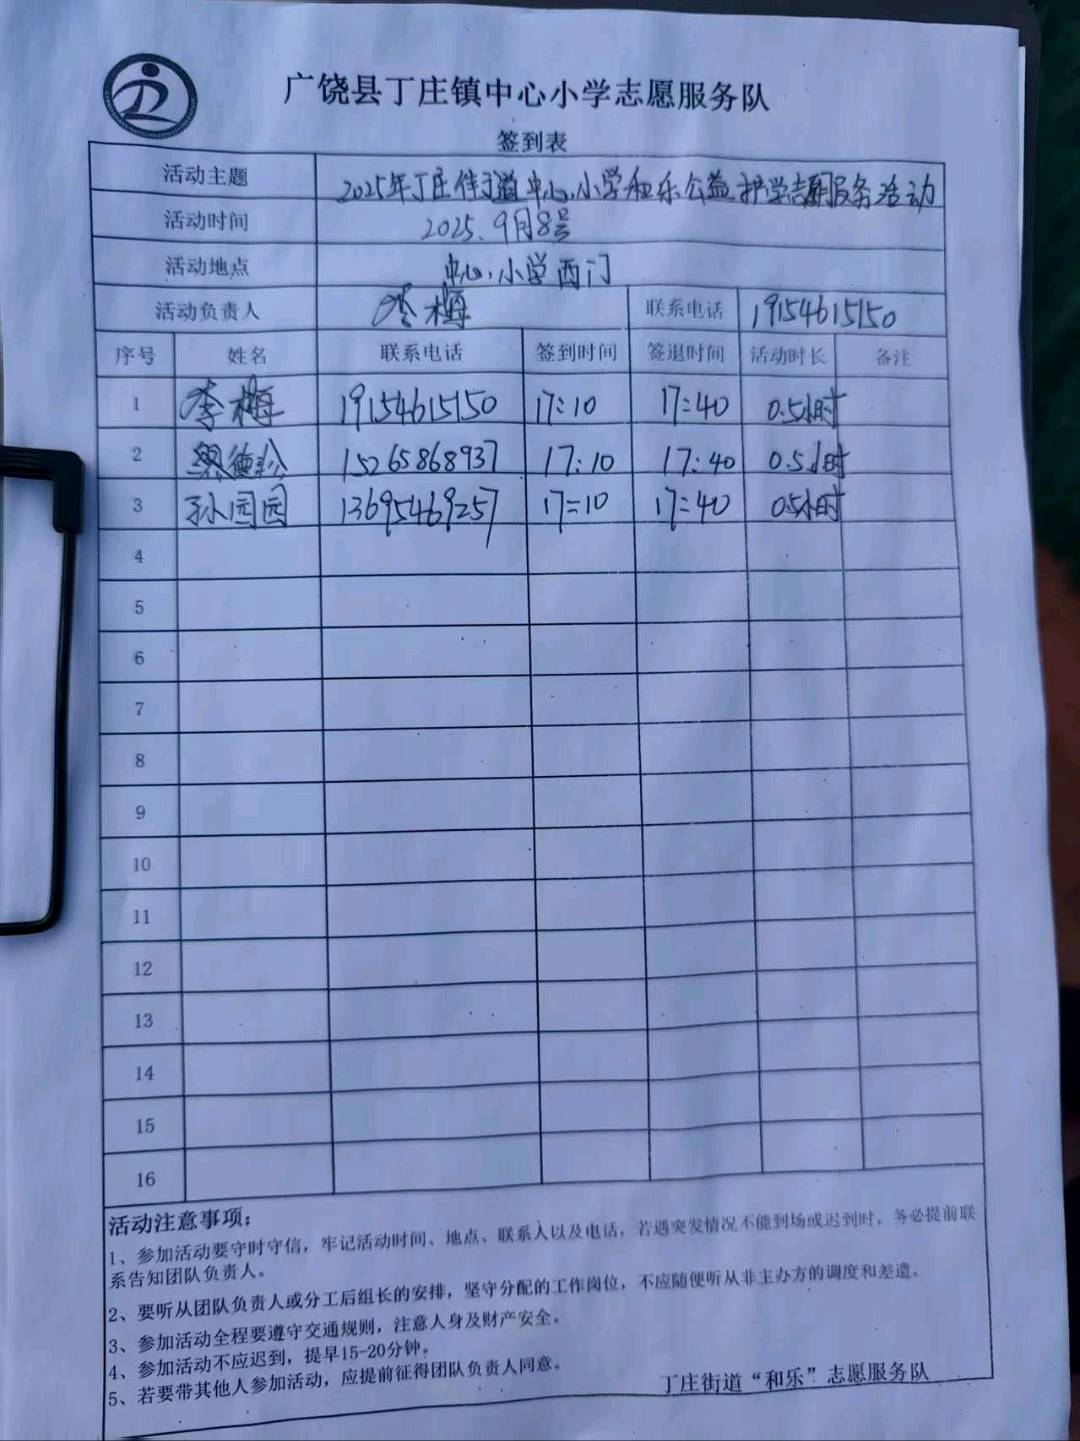 广饶县丁庄镇中心小学志愿服务队
签到表
活动主题 2025年丁庄街道中心小学和乐公益护学志愿服务活动
活动时间 2025.9月8号
活动地点 中心小学西门
活动负责人 李梅 联系电话 19154615150
序号 姓名 联系电话 签到时间 签退时间 活动时长 备注
1 李梅 19154615150 17:10 17:40 0.5小时
2 15265868937 17:10 17:40 0.5小时
3 孙园园 13695469257 17:10 17:40 0.5小时
4
5
6
7
8
9
10
11
12
13
14
15
16
活动注意事项:
1、参加活动要守时守信，牢记活动时间、地点、联系人以及电话，若遇突发情况不能到场或迟到时，务必提前联
系告知团队负责人。
2、要听从团队负责人或分工后组长的安排，坚守分配的工作岗位，不应随便听从非主办方的调度和差遣。
3、参加活动全程要遵守交通规则，注意人身及财产安全。
4、参加活动不应迟到，提早15-20分钟。
5、若要带其他人参加活动，应提前征得团队负责人同意。
丁庄街道“和乐”志愿服务队